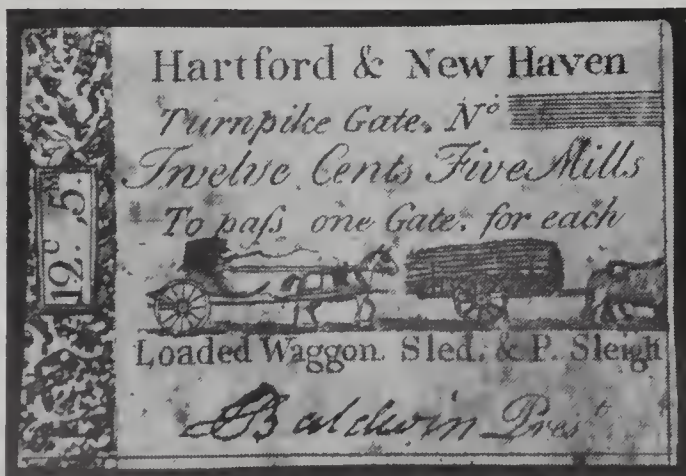 Hartford & New Haven
Turnpike Gate. No
Twelve Cents Five Mills
To paſs one Gate. for each
Loaded Waggon. Sled. & P. Sleigh
Baldwin Prest
12.C 5M